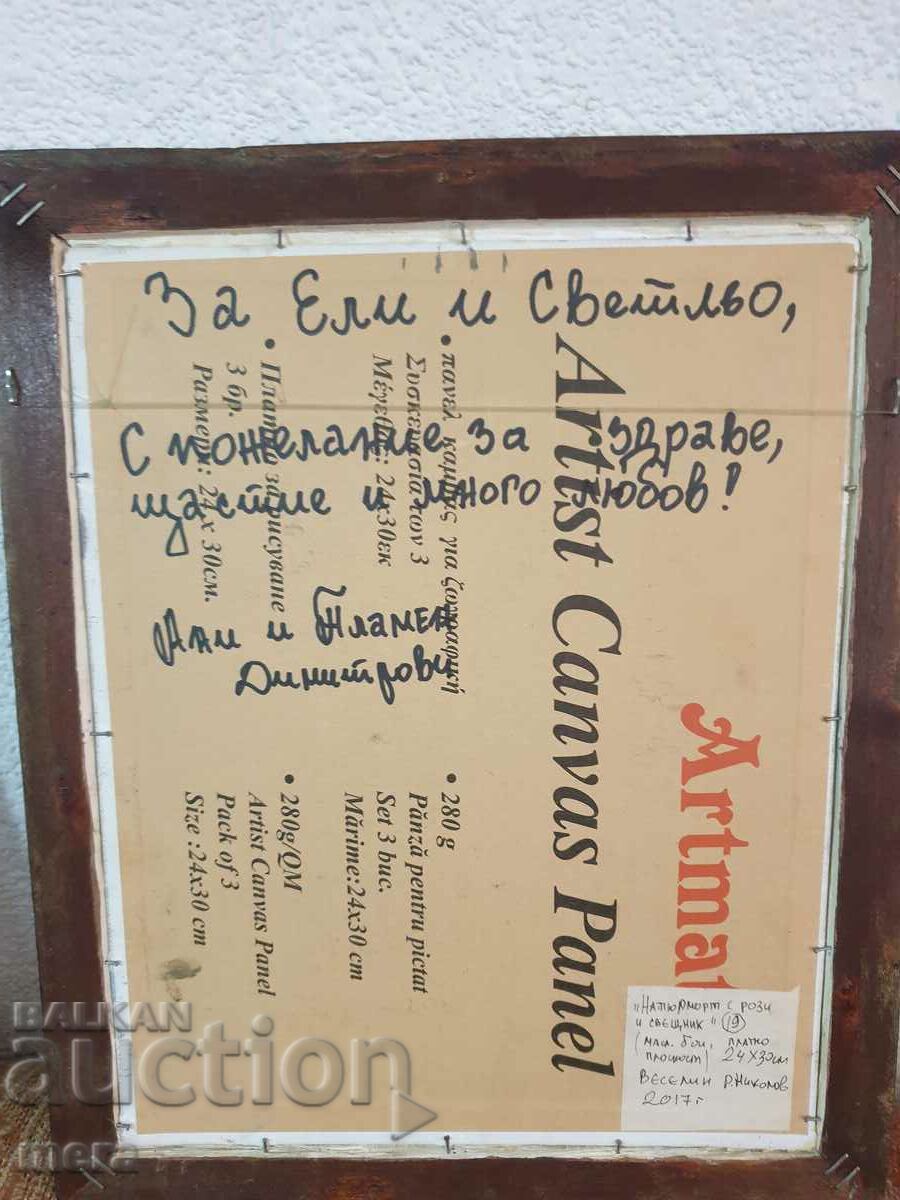 За Ели и Светльо,
С пожелание за здраве,
щастие и много любов!
Ани и Пламен
Димитрови
Artmat
Artist Canvas Panel
• πανελ καμβάς για ζωγραφική
Συσκευασία των 3
Μέγεθος: 24x30εκ
• Платно за рисуване
3 бр.
Размери: 24 x 30см.
• 280 g
Pânză pentru pictat
Set 3 buc.
Mărime:24x30 cm
• 280g/QM
Artist Canvas Panel
Pack of 3
Size :24x30 cm
"Натюрморт с рози
и свещник" (19)
(масл. бои, платно
плоскост) 24X30см
Веселин Р. Николов
2017г
BALKAN
auction
mera